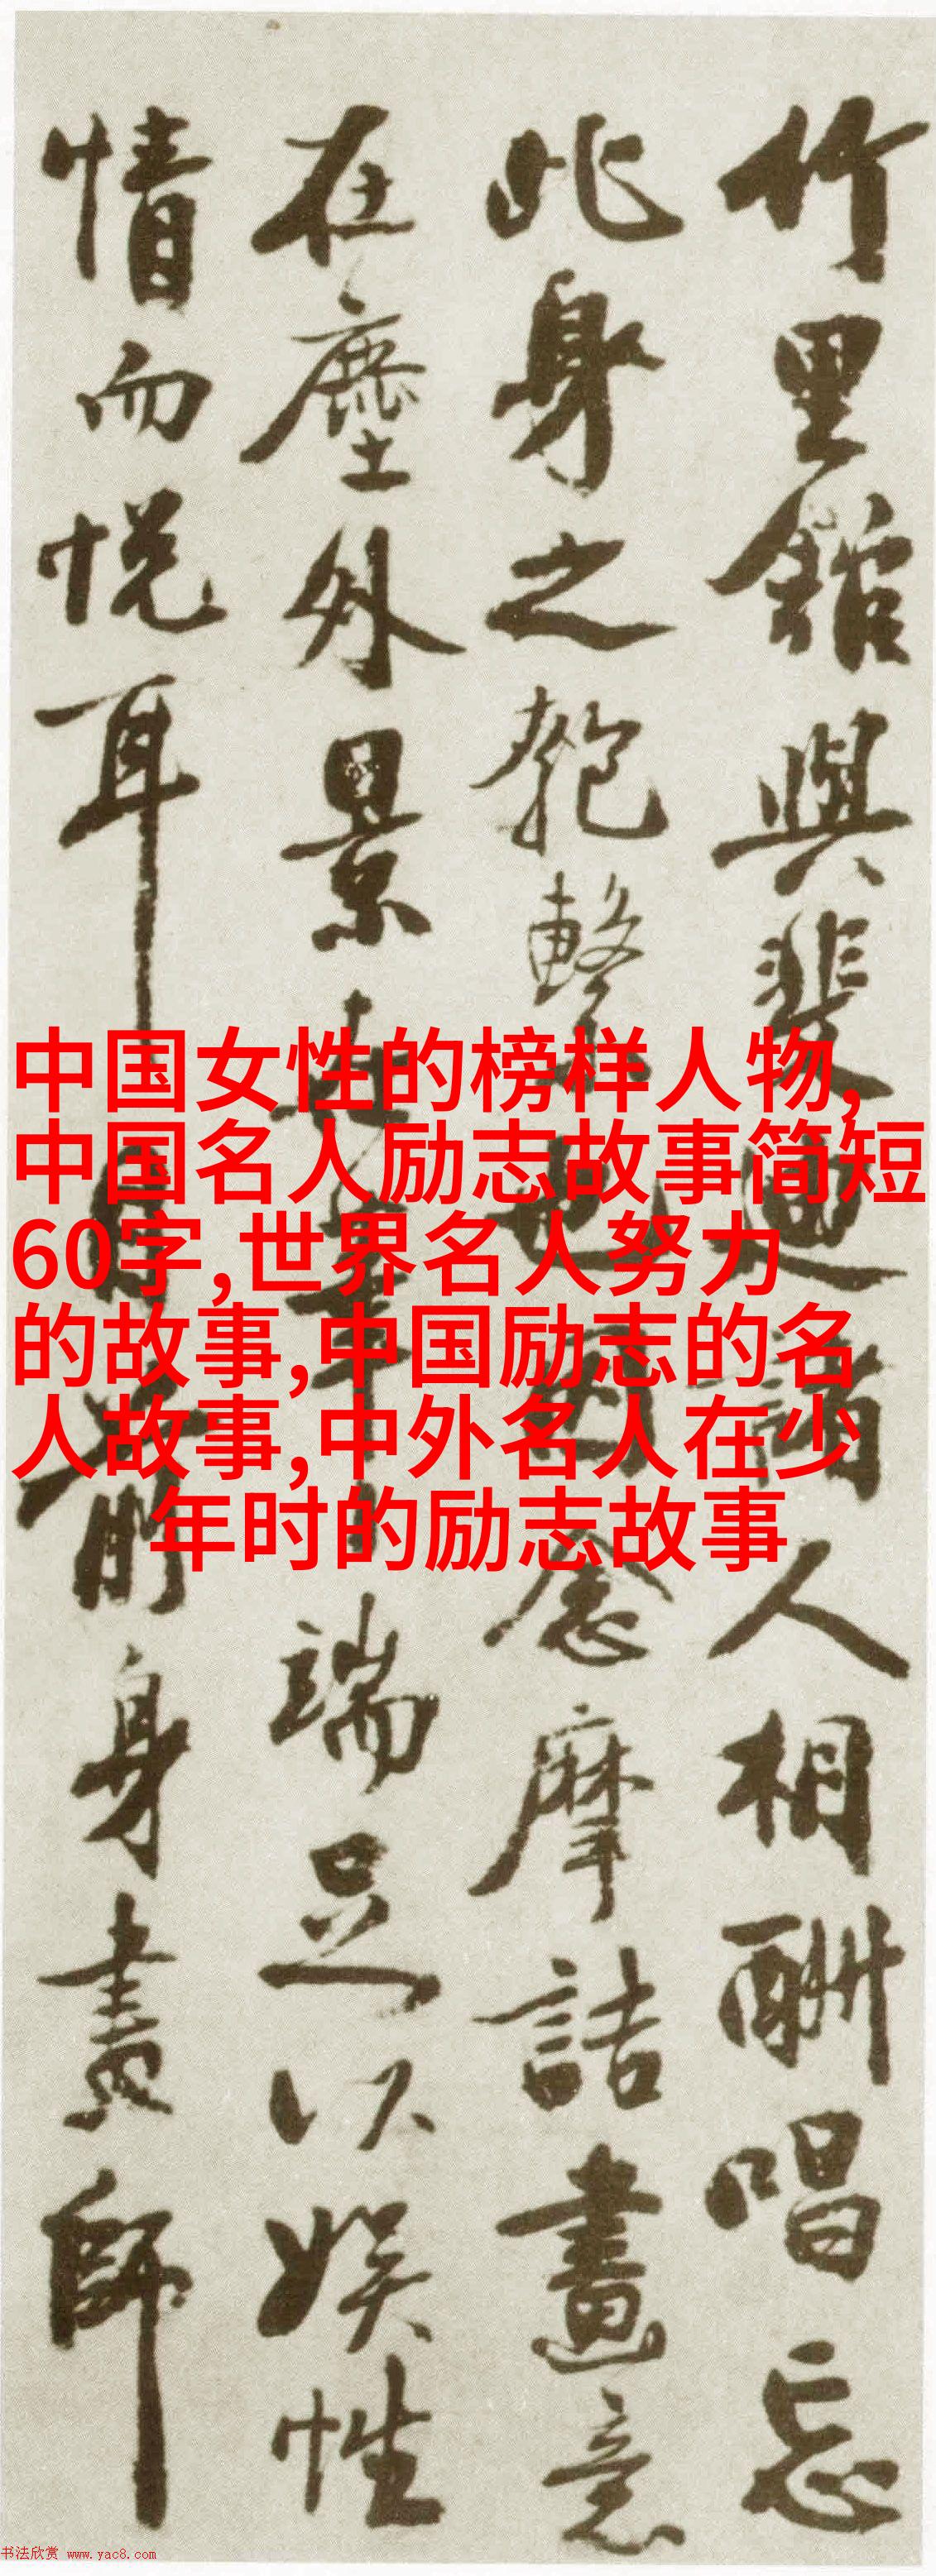 竹里館與裴迪諸人相酬唱忘
此身之匏繫也因念摩詰畫意
在塵外景在筆端足以娛性
情而悅耳目前身畫師
中国女性的榜样人物,
中国名人励志故事简短
60字,世界名人努力
的故事,中国励志的名
人故事,中外名人在少
年时的励志故事
书法欣赏 www.yac8.com